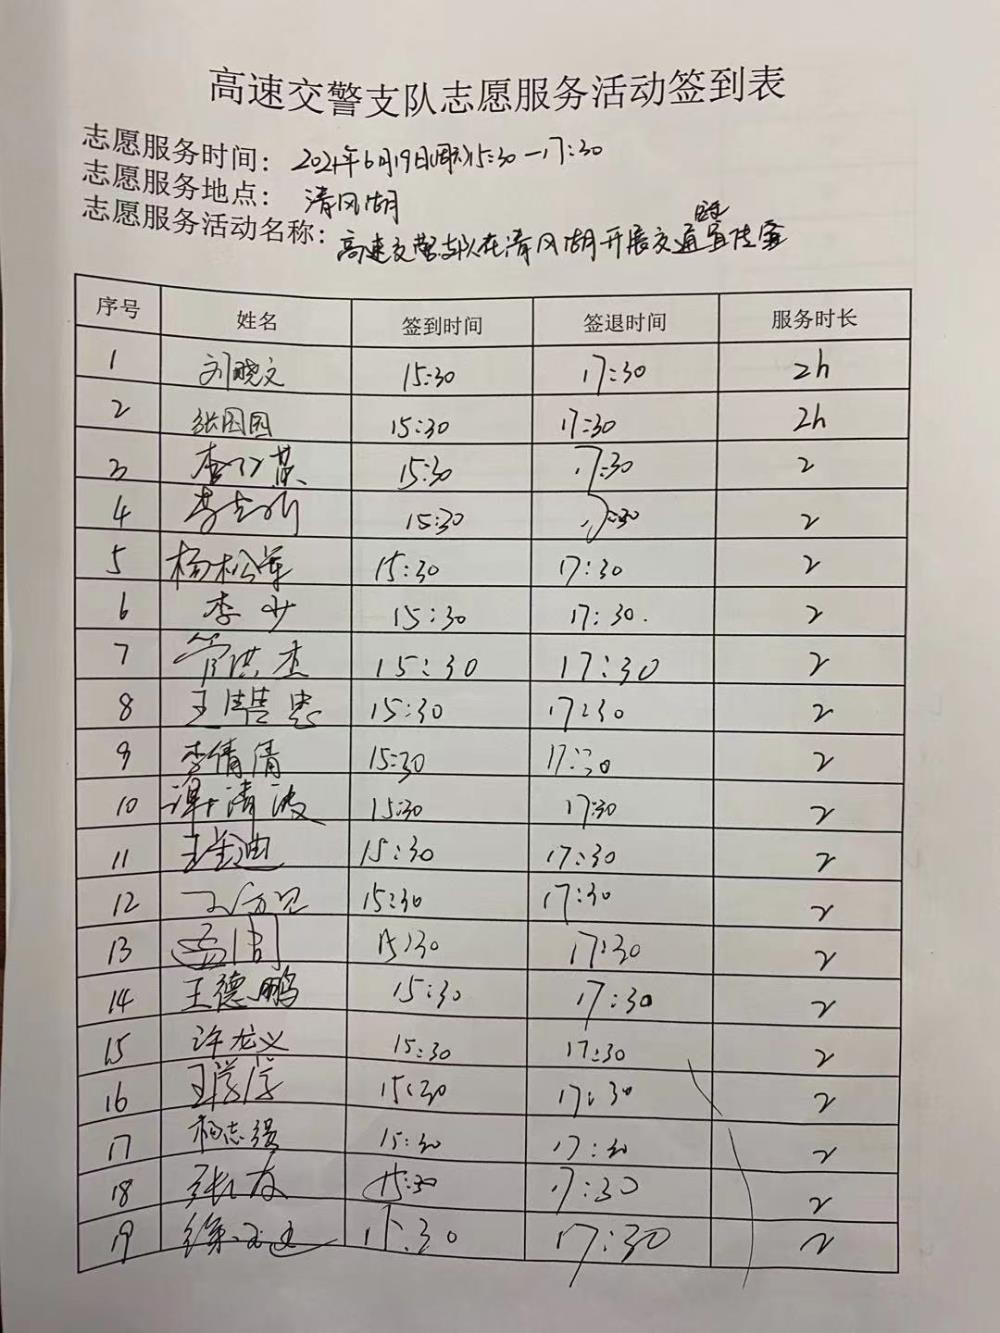 高速交警支队志愿服务活动签到表
志愿服务时间: 2021年6月19日(周六)15:30—17:30
志愿服务地点: 清风湖
志愿服务活动名称: 高速交警支队在清风湖开展交通宣传
序号 姓名 签到时间 签退时间 服务时长
1 刘晓文 15:30 17:30 2h
2 张园园 15:30 17:30 2h
3 15:30 17:30 2
4 15:30 17:30 2
5 杨松 15:30 17:30 2
6 李少 15:30 17:30. 2
7 管洪杰 15:30 17:30 2
8 王 忠 15:30 17:30 2
9 李倩倩 15:30 17:30 2
10 谭清波 15:30 17:30 2
11 王金迪 15:30 17:30 2
12 15:30 17:30 2
13 孟 15:30 17:30 2
14 王德鹏 15:30 17:30 2
15 许龙义 15:30 17:30 2
16 王学 15:30 17:30 2
17 杨志强 15:30 17:30 2
18 张友 15:30 17:30 2
19 徐 15:30 17:30 2